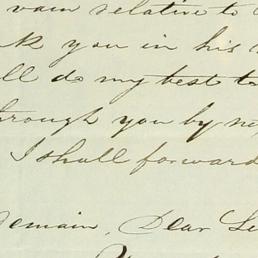 vain relative to
you in his
ll do my best to
through you by
I shall forward
Remain, Dear